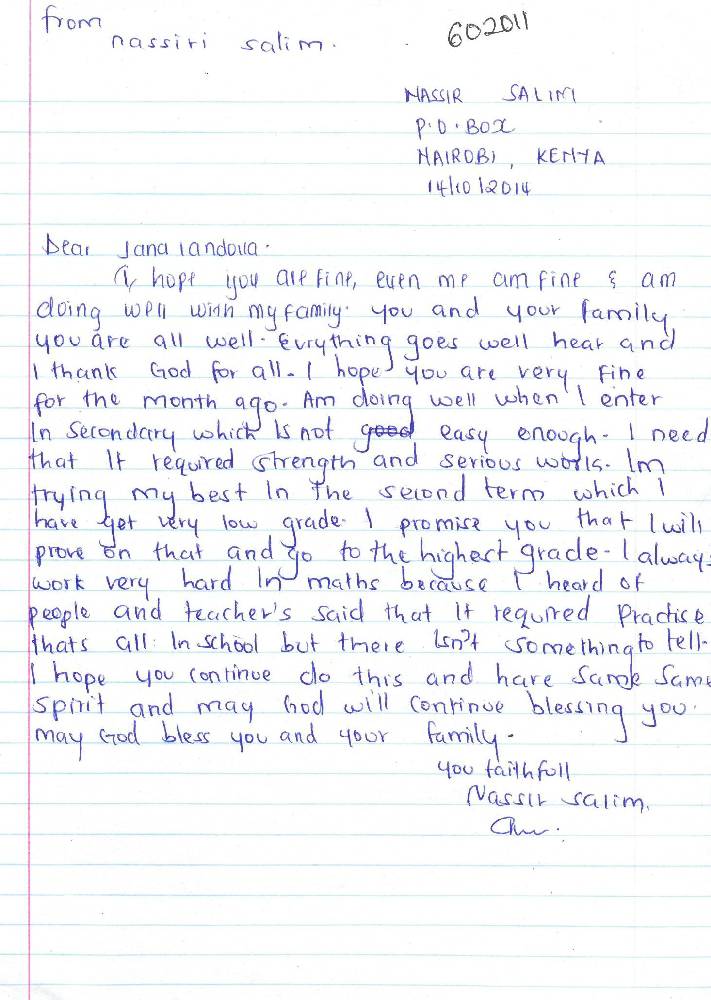 from
nassiri salim.
602011
NASSIR SALIM
P.O.BOX
NAIROBI, KENYA
14/10/2014
Dear Jana
I, hope you are fine, even me am fine & am
doing well with my family. you and your family
you are all well. Evrything goes well hear and
I thank God for all. I hope you are very fine
for the month ago. Am doing well when I enter
In Secondary which Is not good easy enough. I need
that It required strength and serious works. Im
trying my best In the second term which I
have get very low grade. I promise you that I will
prove on that and go to the highest grade. I always
work very hard In maths because I heard of
people and teacher's said that It required Practise
thats all. In school but there Isn't something to tell.
I hope you continue do this and have same
spirit and may God will continue blessing you.
may God bless you and your family.
you faithfull
Nassir Salim.